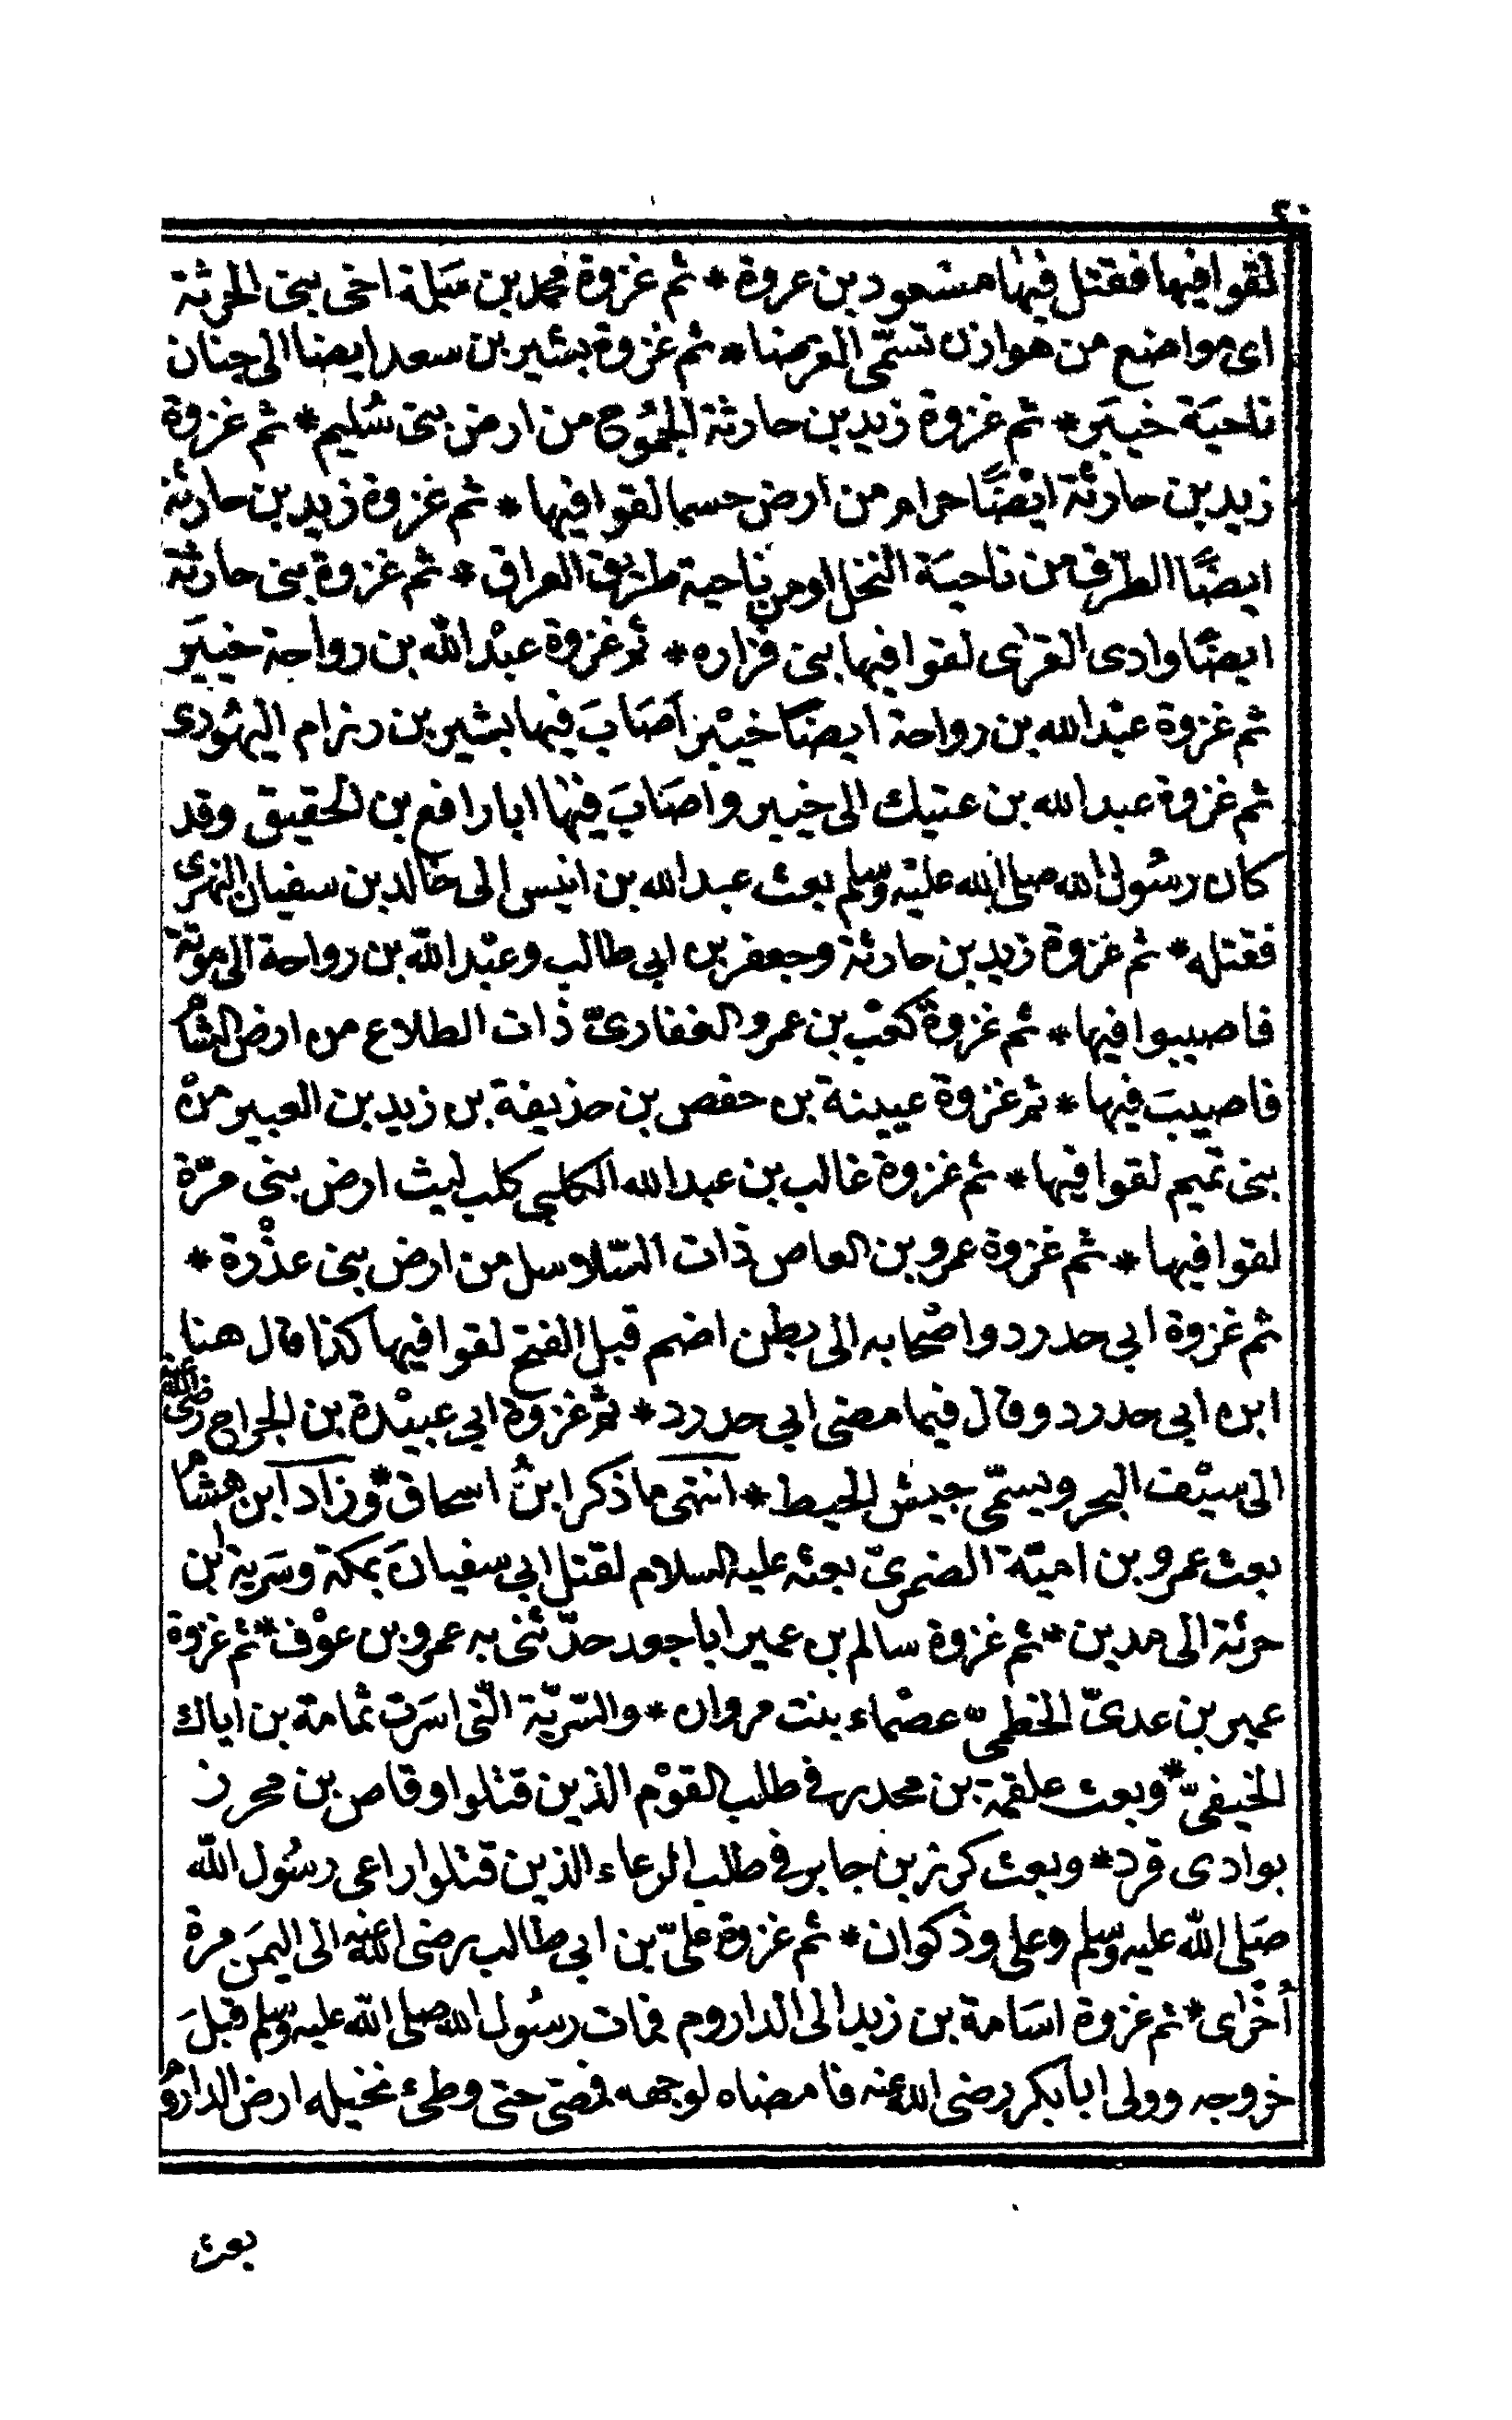 ٢٠
لقوا فيها فقتل فيها مسعود بن عروة * ثم غزوة محمد بن مسلمة اخى بنى الحرثة
اى مواضع من هوازن تسمّى القرضا * ثم غزوة بشير بن سعد ايضا الى جنان
ناحيَة خيبَر * ثم غزوة زيد بن حارثة الجمُوح من ارض بنى سُليم * ثم غزوة
زيد بن حارثة ايضًا حرام من ارض حسما لقوا فيها * ثم غزوة زيد بن حارثة
ايضًا الطّرف من ناحيَة النخل او من ناحية طريق العراق * ثم غزوة بنى حارثة
ايضًا وادى القرٰى لقوا فيها بنى فزاره * ثم غزوة عبْد الله بن رواحة خيبَر
ثم غزوة عبْد الله بن رواحة ايضًا خيْبر اَصَابَ فيها بشير بن رزام اليهُودى
ثم غزوة عبد الله بن عتيك الى خيبر واصَابَ فيها ابا رافع بن الحقيق وقد
كان رسُول الله صلى الله عليْه وسلم بعث عبد الله بن انيس الى خالد بن سفيان النهرى
فقتله * ثم غزوة زيد بن حارثة وجعفر بن ابى طالب وعبْد الله بن رواحة الى موتة
فاصيبوا فيها * ثم غزوة كعْب بن عمرو الغفارىّ ذات الطلاع من ارض الشام
فاصيبَ فيها * ثم غزوة عيينة بن حفص بن حذيفة بن زيد بن العبير منْ
بنى تميم لقوا فيها * ثم غزوة غالب بن عبد الله الكلبى كلب ليث ارض بنى مرّة
لقوا فيها * ثم غزوة عمرو بن العاص ذات السّلاوسل من ارض بنى عذْرة *
ثم غزوة ابى حدرد واصْحابه الى بطن اضم قبل الفتح لقوا فيها كذا قال هنا
ابن ابى حدرد وقال فيما مضى ابى حدرد * ثم غزوة ابى عبيْدة بن الجراح رضى الله عنه
الى سيْف البحر ويسمّى جيش الحيط * انتهى ما ذكر ابنُ اسحاق * وزاد ابن هشام
بعث عمرو بن اميّة الضمرىّ بعثه عليه السلام لقتل ابى سفيانَ بمكة وسَرية ابن
حرثة الى مدين * ثم غزوة سالم بن عمير ابا جعد حدّثنى به عمرو بن عوْف * ثم غزوة
عمير بن عدىّ الخطمىّ عصْماء بنت مروان * والسّريّة الّتى اسَرت ثمامة بن اياك
الحنيفىّ * وبعث علقمة بن محدر فى طلب القوْم الذين قتلوا وقاص بن محرز
بوادى قرد * وبعث كرز بن جابر فى طلب الرعاء الذين قتلوا راعى رسُول الله
صَلى الله عليه وسلم وعلى وذكوان * ثم غزوة علىّ بن ابى طالب رضى الله عنه الى اليمَن مرة
أخْرٰى * ثم غزوة اسَامة بن زيد الى الداروم فمات رسُول الله صلى الله عليه وسلم قبلَ
خروجه وولى ابا بكر رضى الله عنه فامضاه لوجهه فمضى حتى وطئ نخيله ارض الداروم
بعث